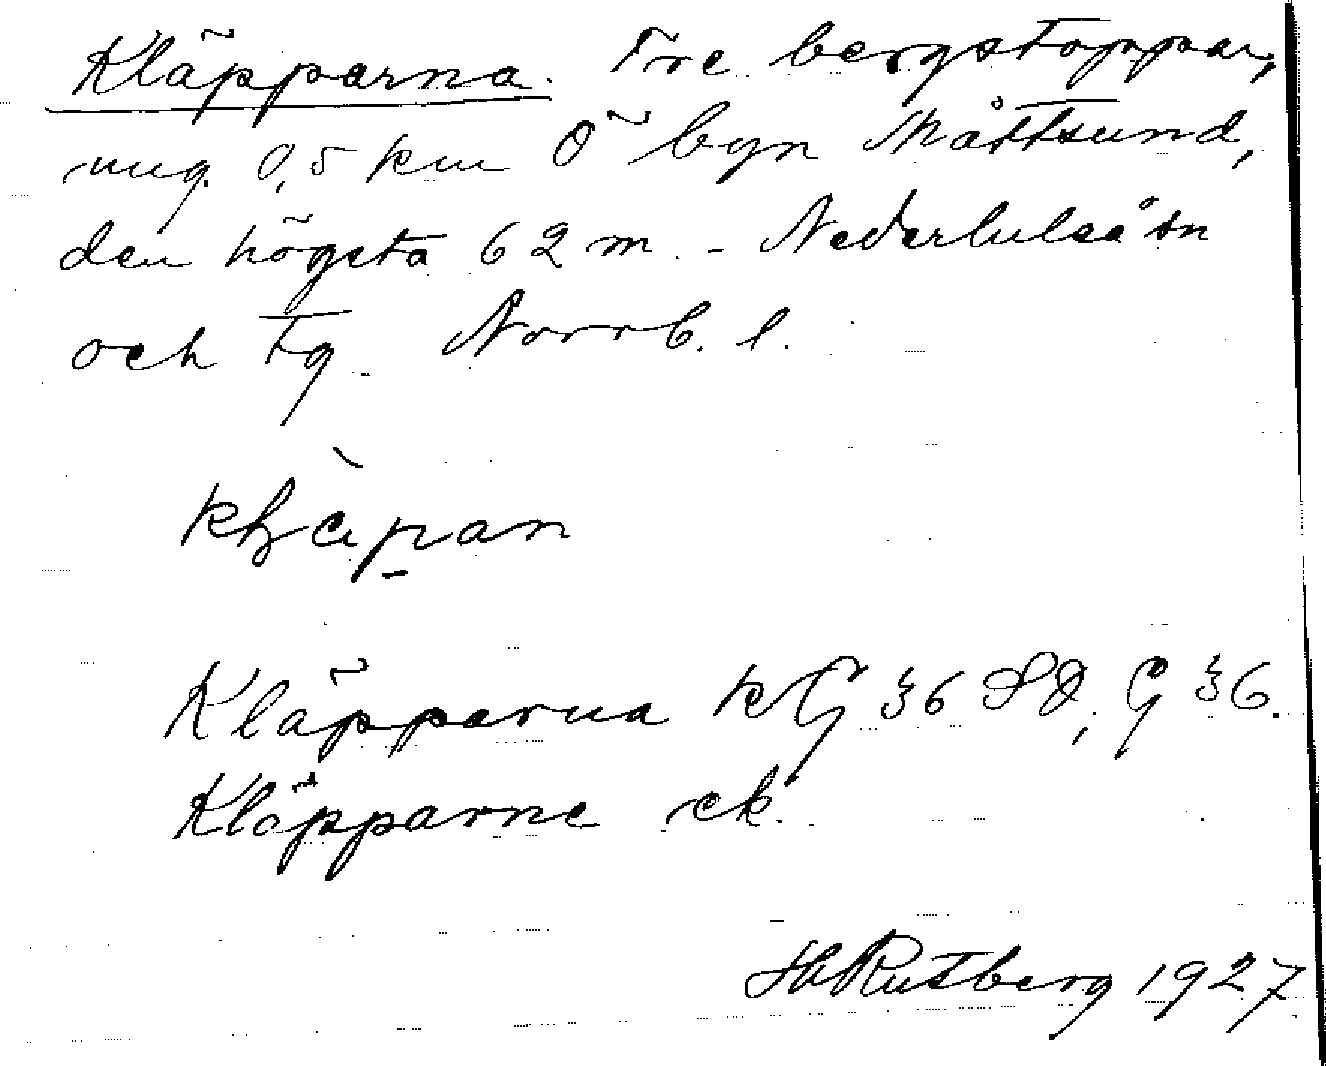 Kläpparna. Tre bergstoppar,
ung. 0,5 km Ö byn Måttsund,
den högsta 62 m. - Nederluleå sn
och tg. Norrb. l.
Kläpparna k G 36 SO, G 36.
Kläpparne ek.
HRutberg 1927